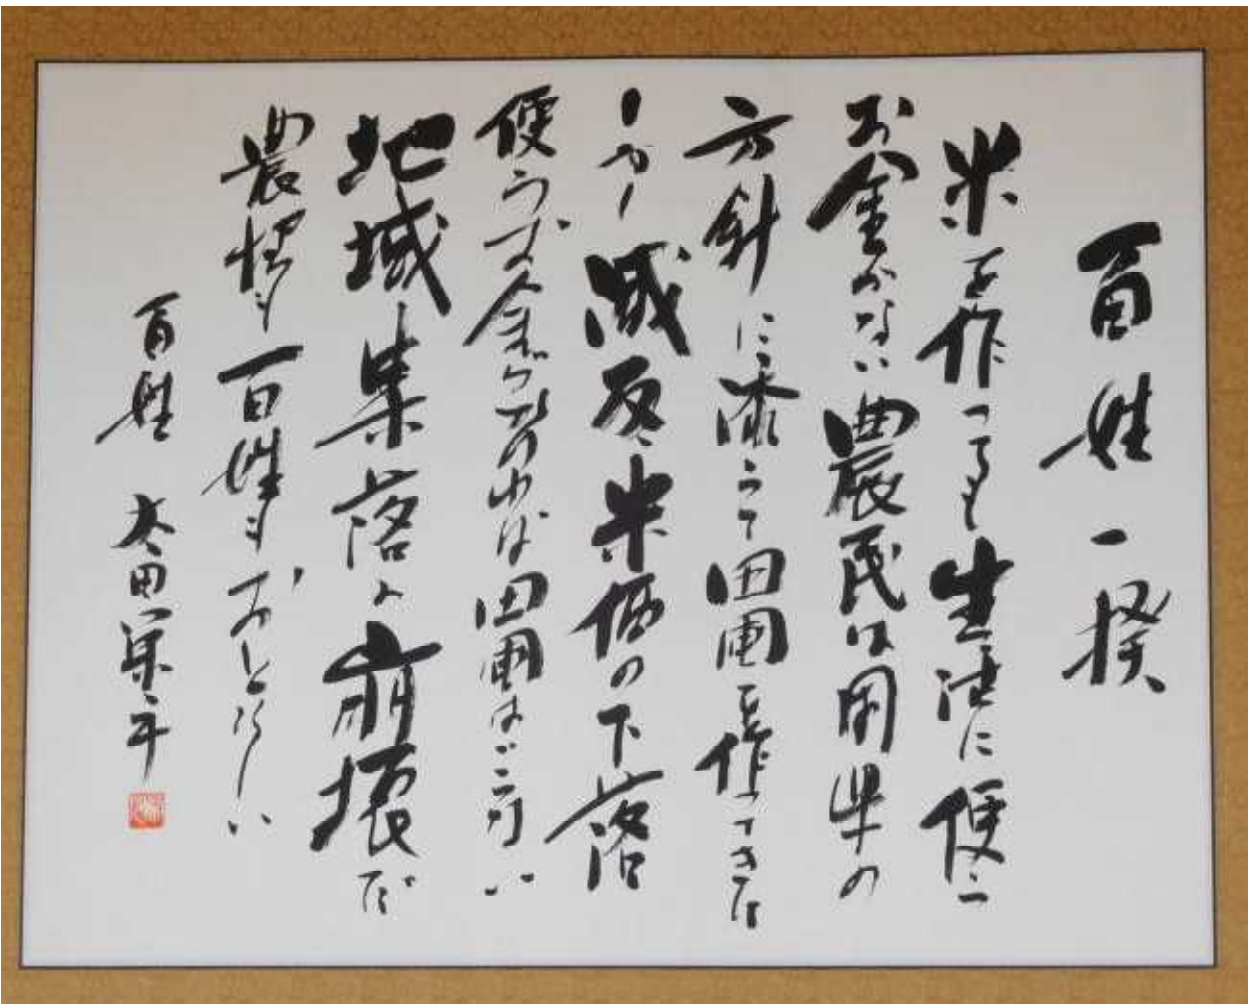 百姓一揆
米を作っても生活に使う
お金がない農民は国県の
方針に添って田圃を作ってきた
しかし減反米価の下落
使うお金が
田圃は
地域集落の崩壊だ
農協も百姓もおとなしい
百姓 太田